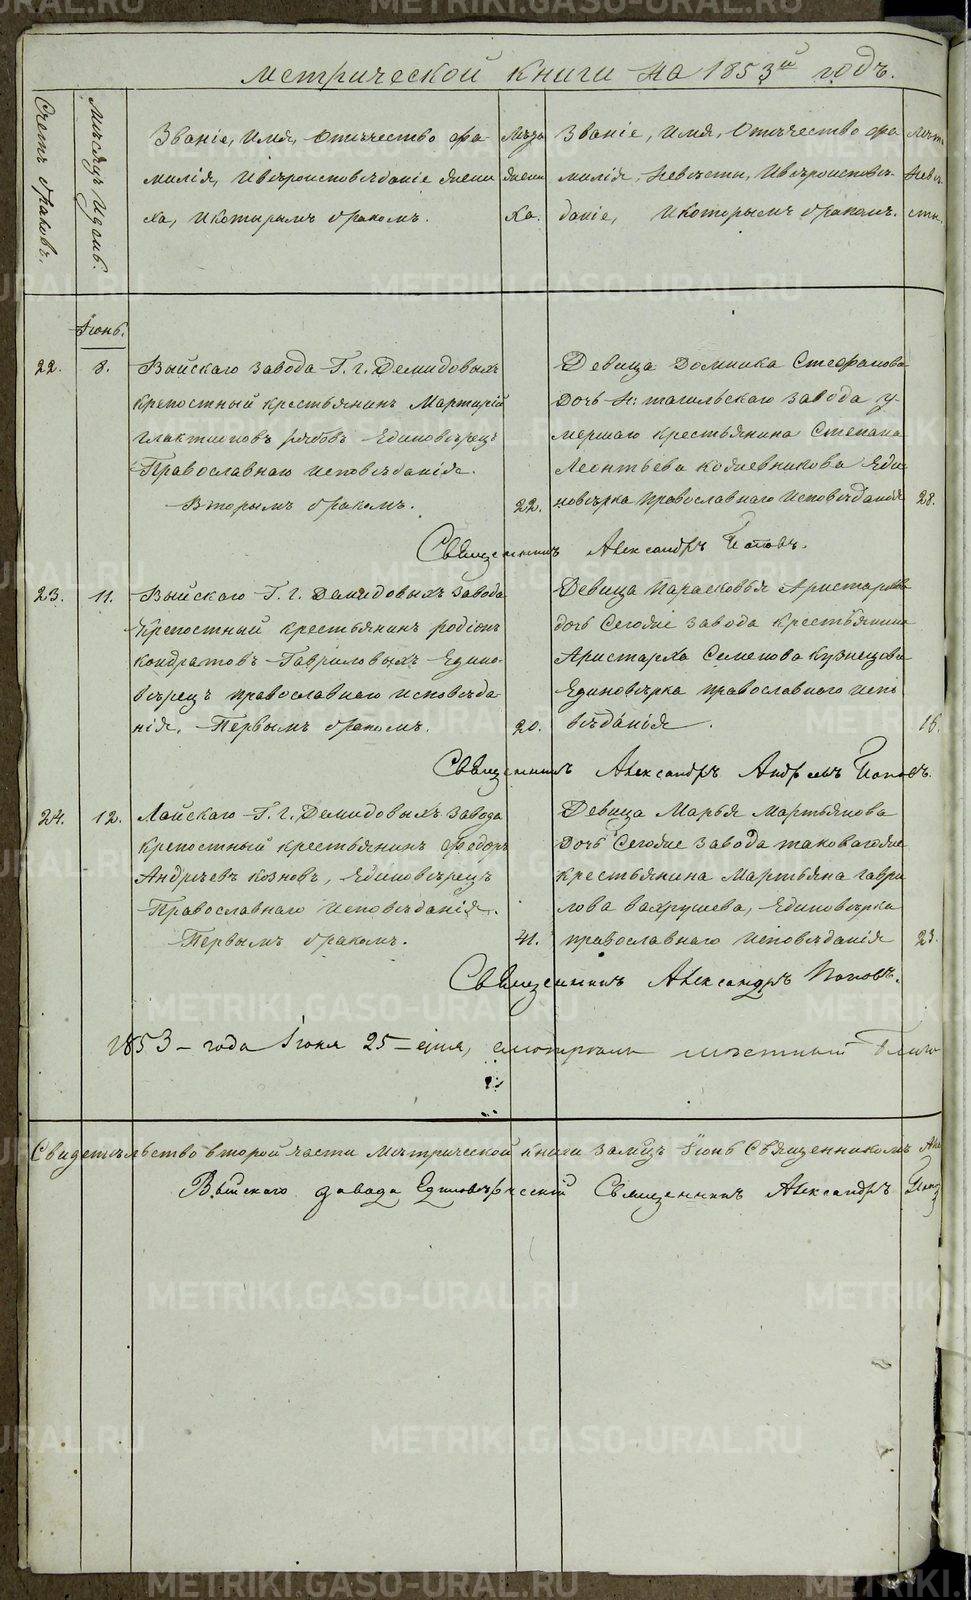 Метрической книги на 1853й годъ.
Счетъ браковъ.
Мѣсяцъ и день.
Званіе, имя, отчество, фа-
милія, и вѣроисповѣданіе жени-
ха, и которымъ бракомъ.
Лѣта
жени
ха.
Званіе, имя, отчество, фа
милія невѣсты, и вѣроисповѣ-
даніе, и которымъ бракомъ.
Лѣта
невѣ
сты.
Іюнь.
22.
8.
Выйскаго завода Г. г. Демидовыхъ
крепостный крестьянинъ Мартирій
Галактіоновъ Единовѣрецъ
Православнаго исповѣданія.
Вторымъ бракомъ.
22.
Девица Домника Стефанова
дочь Н: тагильскаго завода у-
мершаго крестьянина Степана
Леонтьева Кожевникова Еди-
новѣрка православнаго исповѣданія
28.
Священникъ Александръ Поповъ.
23.
11.
Выйскаго Г. г. Демидовыхъ завода
крепостный крестьянинъ родіонъ
кондратовъ Гавриловыхъ Едино-
вѣрецъ православнаго исповѣда-
нія. Первымъ бракомъ.
20.
Девица Парасковья Аристархова
дочь Сегоже завода крестьянина
Аристарха Семенова Кузнецова
Единовѣрка православнаго испо
вѣданія.
16.
Священникъ Александръ Андреевъ Поповъ.
24.
12.
Лайскаго Г. г. Демидовыхъ завода
крепостный крестьянинъ Федоръ
Андрѣевъ козновъ, Единовѣрецъ
Православнаго исповѣданія.
Первымъ бракомъ.
41.
Девица Марья Мартьянова
дочь Сегоже завода таковагоже
крестьянина Мартьяна гаври
лова вахрушева, Единовѣрка
православнаго исповѣданія
23.
Священникъ Александръ Поповъ.
1853 – года Іюня 25 – дня, смотрѣлъ мѣстный
Свидетельство второй части метрической книги за мцъ Іюнь Священникомъ
Выйскаго завода Единовѣрческій Священникъ Александръ
METRIKI.GASO-URAL.RU